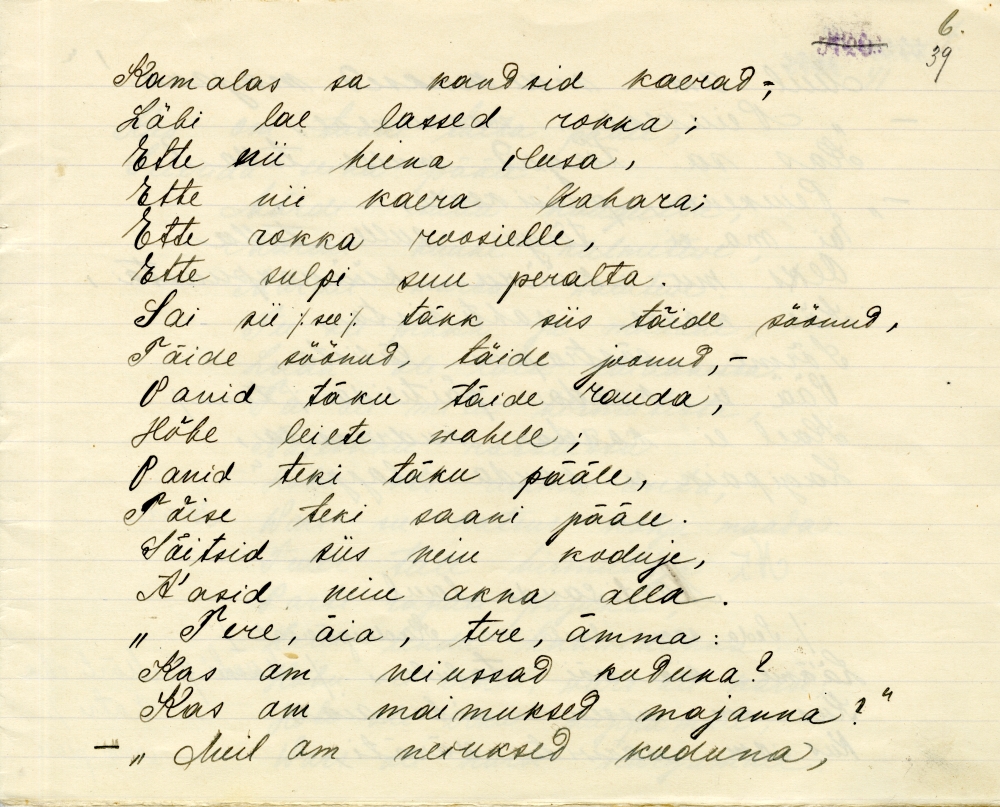 6.
39
Kamalas sa kandsid kaerad,-
Läbi lae lassed rokka;
Ette nii heina ilusa,
Ette nii kaera kahara;
Ette rokka roosielle,
Ette sulpi suu peralta.
Sai sii /: see /: täkk siis täide söönud,
Täide söönud, täide joonud,-
Panid täku täide rauda,
Hõbe leiete wahele;
Panid teki täku pääle,
Tõise teki saani pääle.
Sõitsid siis neiu koduje,
A'asid neiu akna alla.
„Tere, äia, tere, ämma:
Kas om neiussad koduna?
Kas om maimuksed majanna?"
– „Meil om neiuksed koduna,